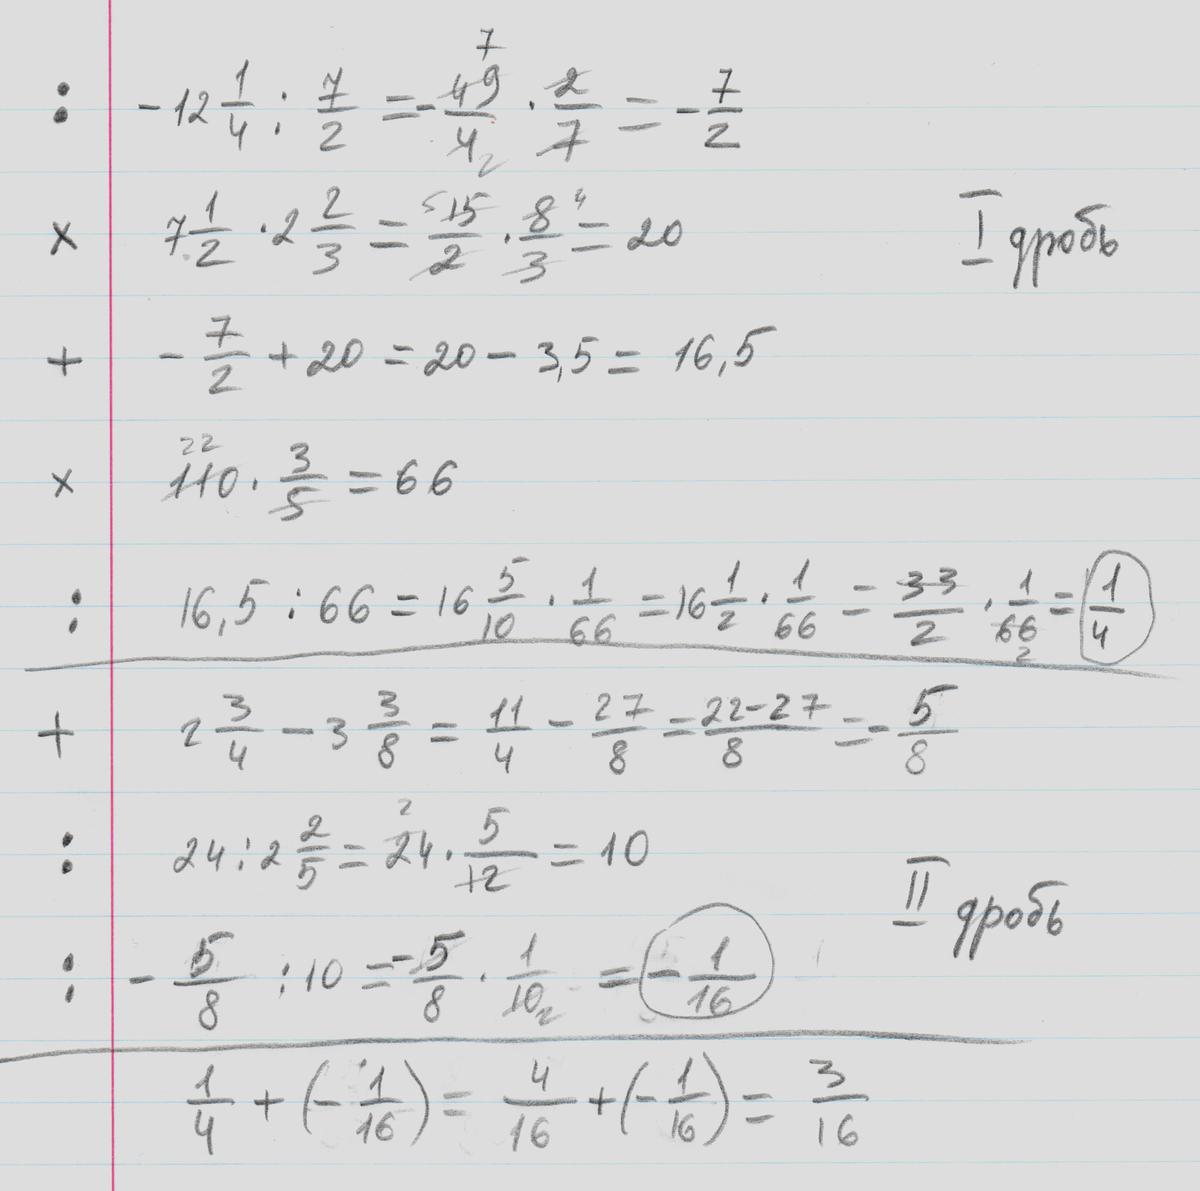 : -12 1/4 : 7/2 = - 49/4 · 2/7 = - 7/2
x 7 1/2 · 2 2/3 = 15/2 · 8/3 = 20
I дробь
+ - 7/2 + 20 = 20 - 3,5 = 16,5
x 110 · 3/5 = 66
: 16,5 : 66 = 16 5/10 · 1/66 = 16 1/2 · 1/66 = 33/2 · 1/66 = 1/4
+ 2 3/4 - 3 3/8 = 11/4 - 27/8 = 22-27/8 = - 5/8
: 24 : 2 2/5 = 24 · 5/12 = 10
II дробь
: - 5/8 : 10 = - 5/8 · 1/10 = - 1/16
1/4 + (- 1/16) = 4/16 + (- 1/16) = 3/16